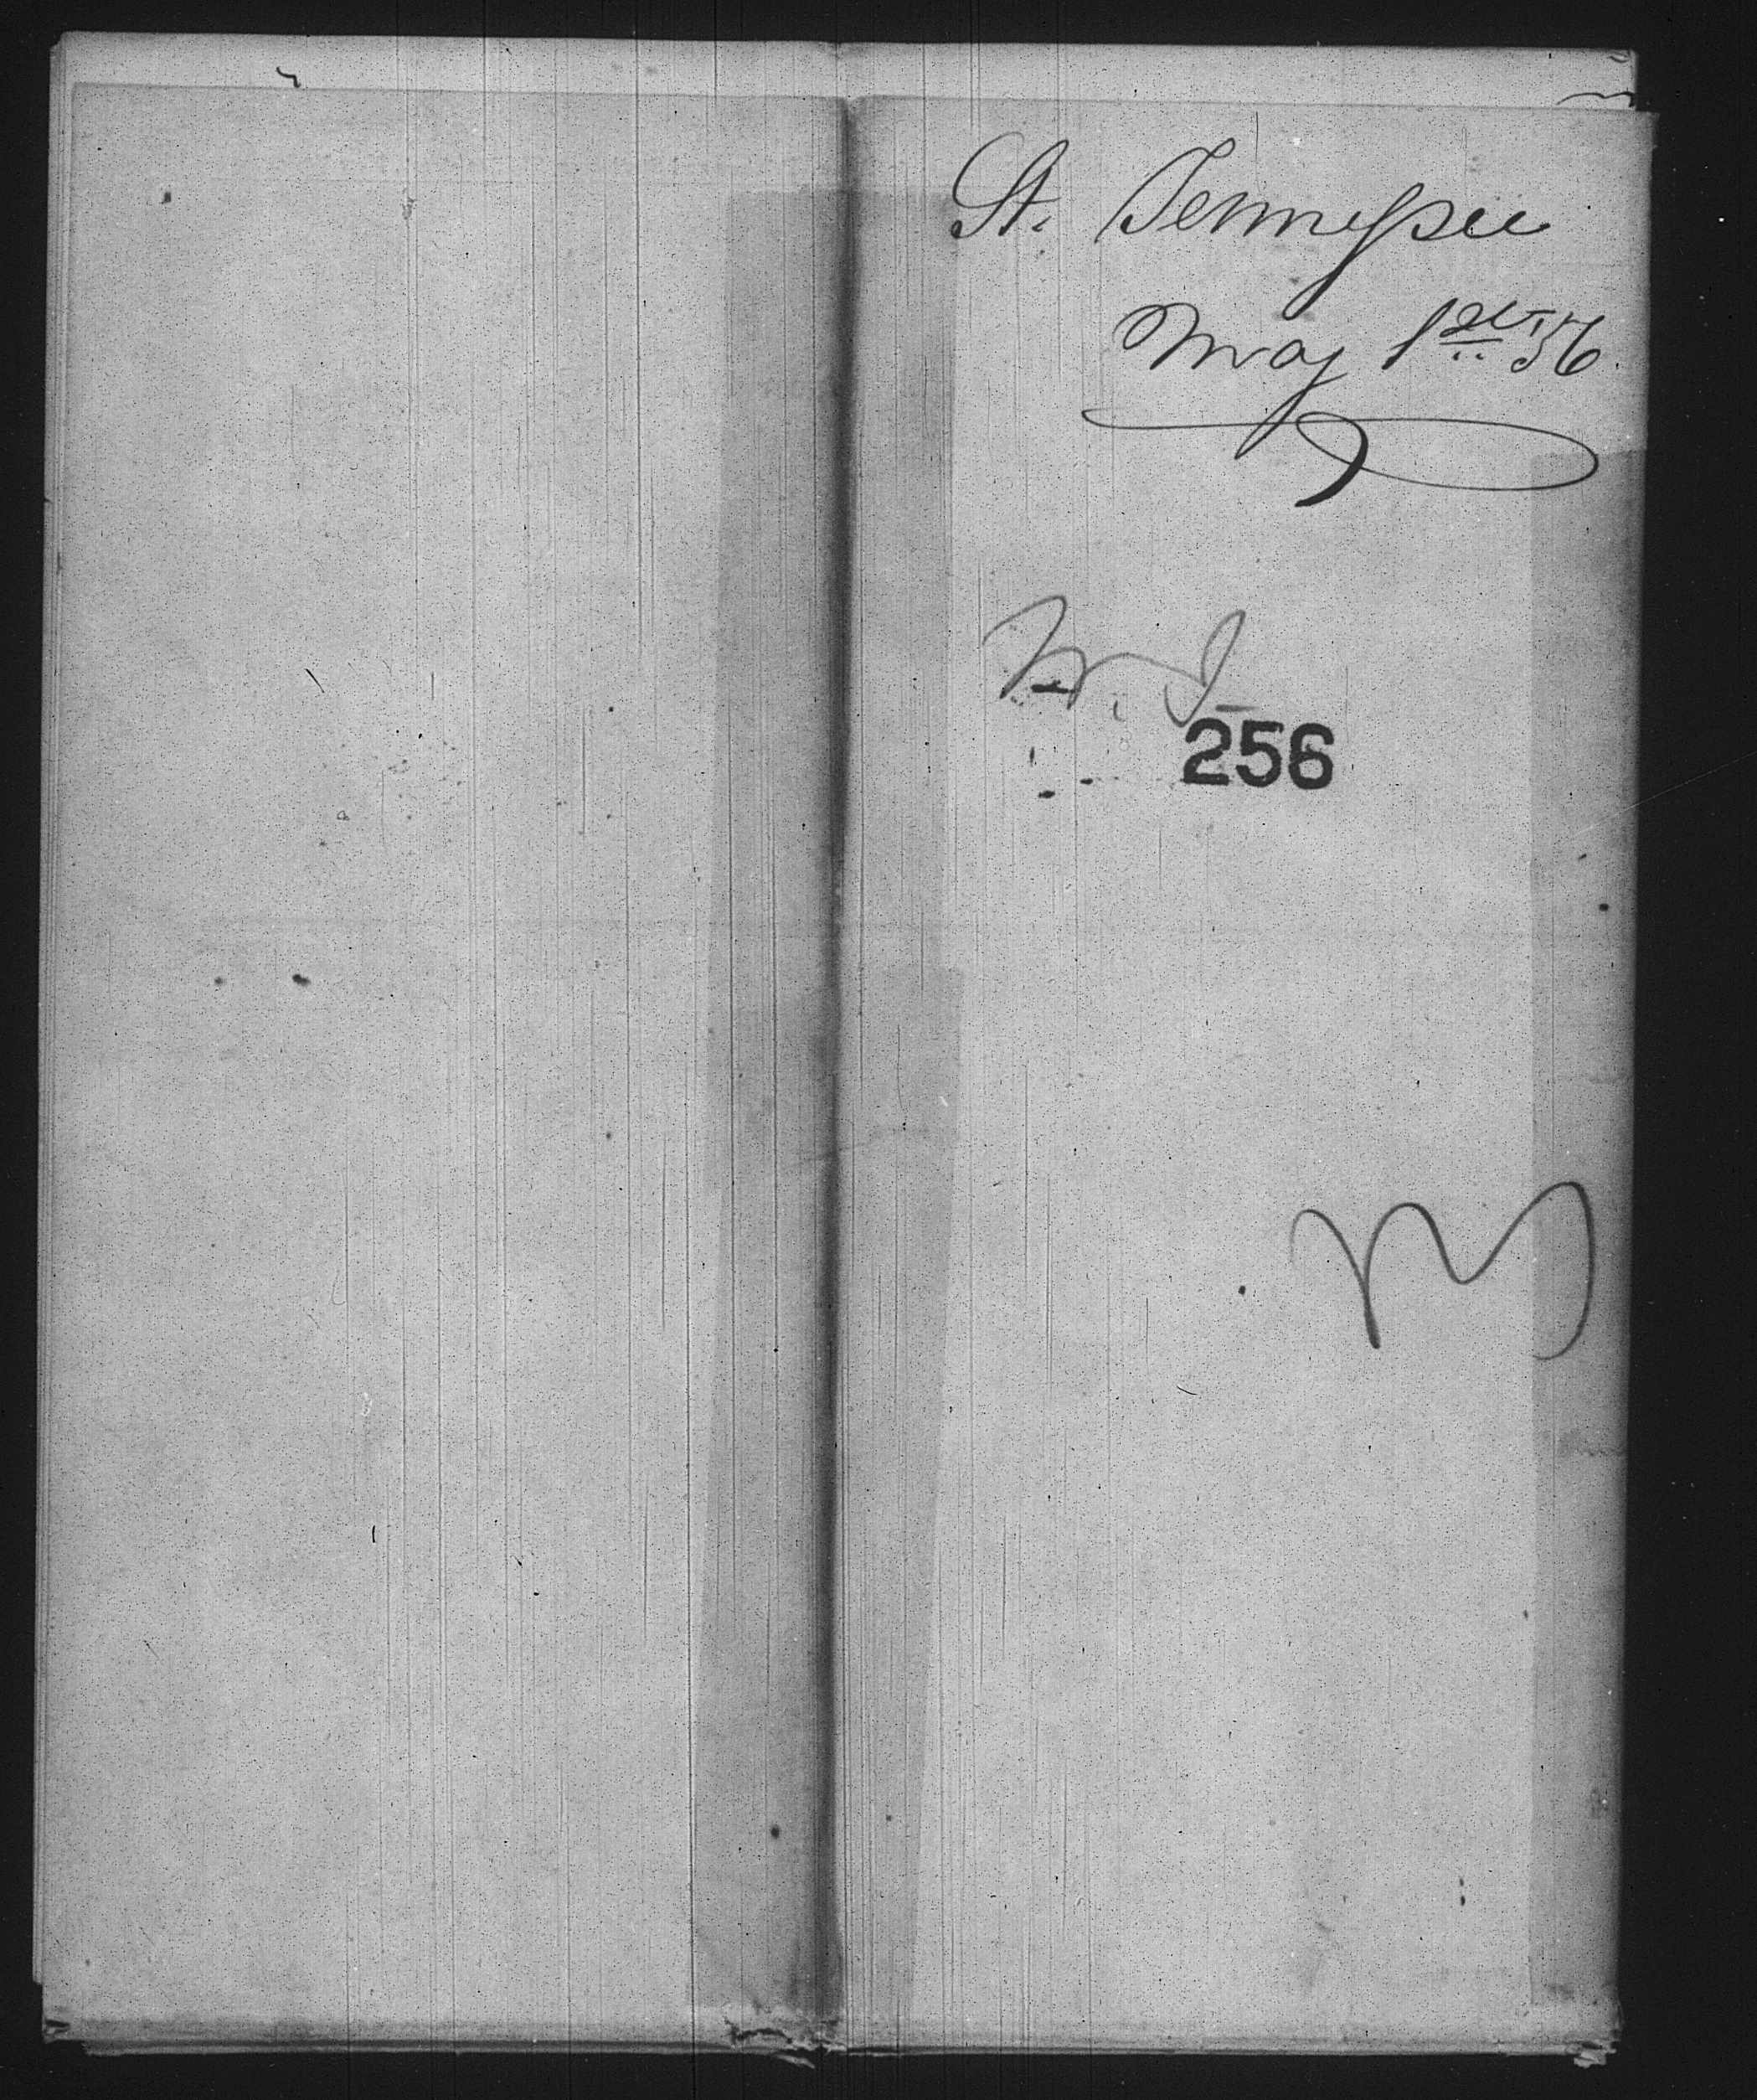 St. Tennessee
May 1st 56.
256